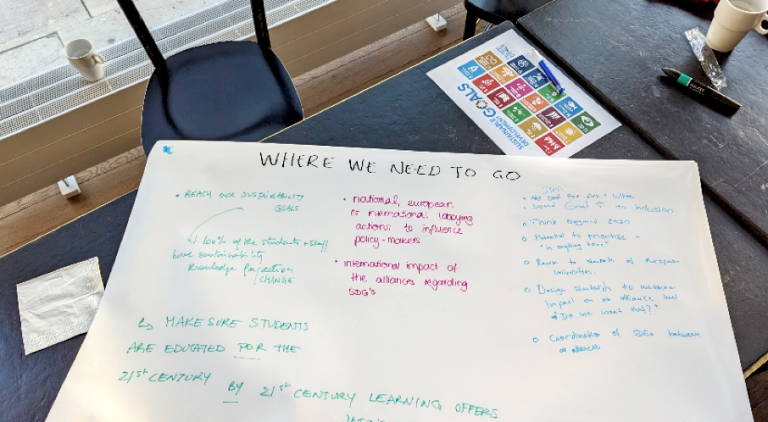 WHERE WE NEED TO GO
• REACH OUR SUSTAINABILITY
GOALS
↳ 100% of the students + staff
have sustainability
knowledge for action
CHANGE
↳ MAKE SURE STUDENTS
ARE EDUCATED FOR THE
21st CENTURY BY 21st CENTURY LEARNING OFFERS
• national, european
or international lobbying
actions to influence
policy-makers
• international impact of
the alliances regarding
SDG's
Think beyond 2030
Potential to prioritise -
"is anything done"
of European
Universities
Design standards to measure
impact on an alliance level
Do we want that?"
Coordination of SDGs between
alliances
SUSTAINABLE
DEVELOPMENT
GOALS